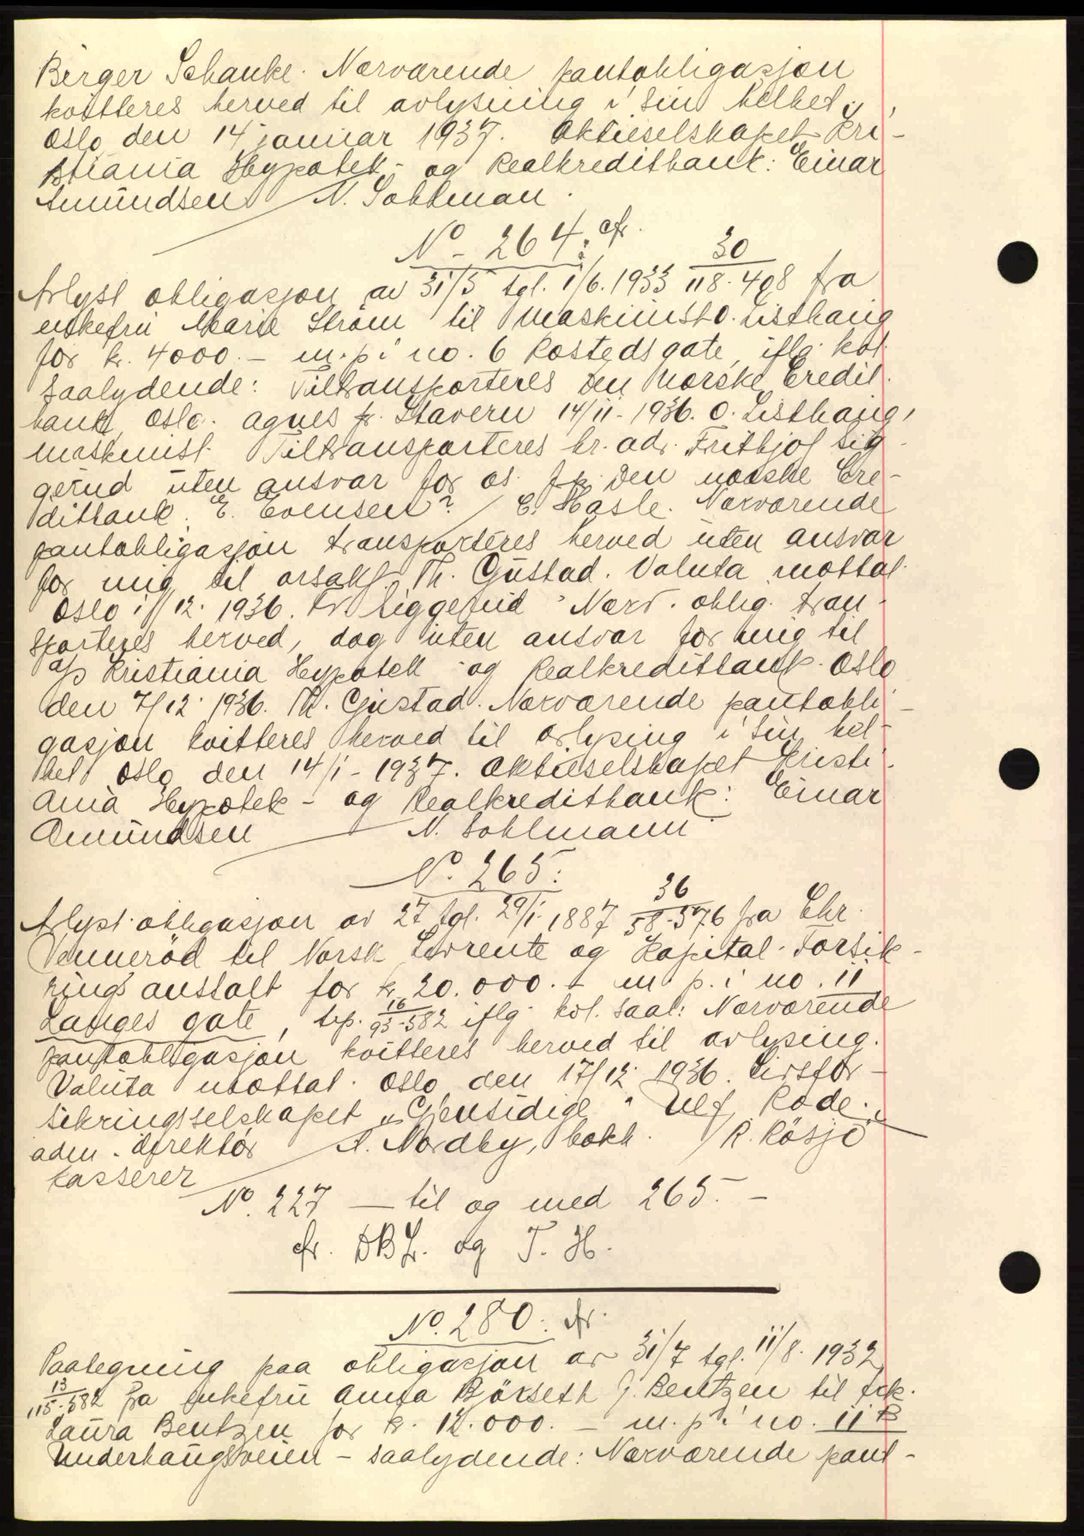 Birger Schanke. Nærværende pantobligasjon
kvitteres herved til avlysning i sin helhet.
Oslo den 14 januar 1937. Aktieselskapet Kri-
stiania Hypotek- og Realkreditbank: Einar
Amundsen N. Sohlman.
No - 264. cfr.
Avlyst obligasjon av 31/5 tgl. 1/6. 1933 30/118-408 fra
enkefru Marie Strøm til maskinist O. Listhaug
for kr. 4000.- m. p. i no. 6 Rostedsgate, iflg. kvl
saalydende: Tiltransporteres Den norske Credit-
bank, Oslo. Agnes pr. Stavern 14/11 - 1936. O. Listhaug,
maskinist. Tiltransporteres hr. adv. Frithjof Lig-
gerud uten ansvar for os. For Den norske Cre-
ditbank. E. Evensen? E. Hasle. Nærværende
pantobligasjon transporteres herved uten ansvar
for mig til orsakf. Th. Gustad. Valuta mottat.
Oslo 1/12. 1936. Fr. Liggerud. Nærv. oblig. tran-
sporteres herved, dog uten ansvar for mig til
a/s Kristiania Hypotek - og Realkreditbank. Oslo
den 7/12. 1936. Th. Gustad. Nærværende pantobli-
gasjon kvitteres herved til avlysing i sin hel-
het. Oslo, den 14/1 - 1937. Aktieselskapet Kristi-
ania Hypotek - og Realkreditbank: Einar
Amundsen N. Sohlmann
No. 265.
Avlyst obligasjon av 27 tgl. 29/1. 1887 36/58-576 fra Chr.
Venneröd til Norsk Livrente og Kapital-Forsik-
ringsanstalt for kr. 20.000.- m. p. i no. 11
Langes gate, trp. 16/93-582 iflg. kvl. saal: Nærværende
pantobligasjon kvitteres herved til avlysing.
Valuta mottat. Oslo, den 17/12 1936. Livsfor-
sikringsselskapet "Gjensidige" Ulf Rode.
adm. direktör A. Nordby, bokh. R. Rösjö
kasserer
No. 227 — til og med 265. -
cfr. DBL. og T. H.
No. 280. cfr.
Paategning paa obligasjon av 31/7 tgl. 11/8. 1932
13/115-582 fra enkefru Anna Björseth f. Bentzen til frk.
Laura Bentzen for kr. 12.000. - m. p. i no. 11 B
Underhaugsveien - saalydende: Nærværende pant-